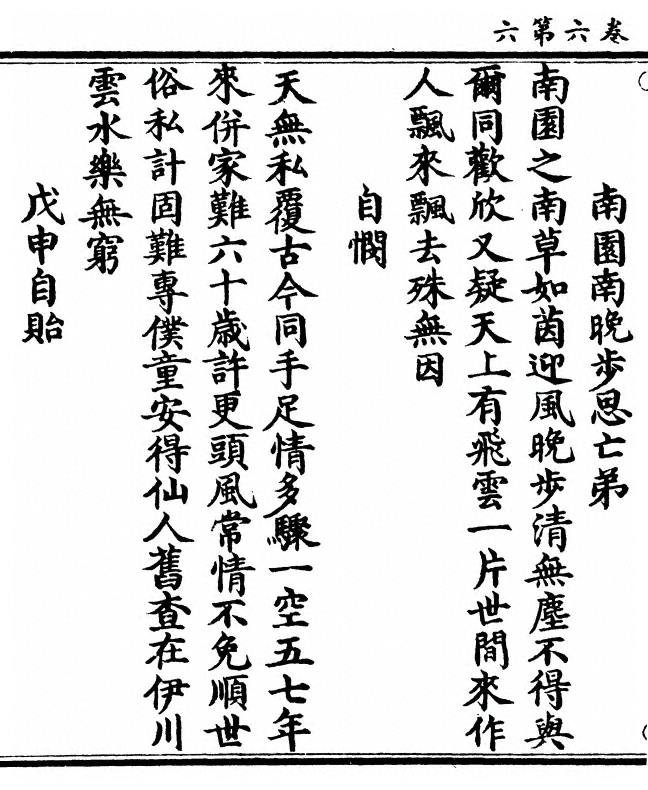 卷六第六
南園南晚步思亡弟
南園之南草如茵迎風晚步清無塵不得與
爾同歡欣又疑天上有飛雲一片世間來作
人飄來飄去殊無因
自憫
天無私覆古今同手足情多驟一空五七年
來併家難六十歲許更頭風常情不免順世
俗私計固難專僕童安得仙人舊查在伊川
雲水樂無窮
戊申自貽